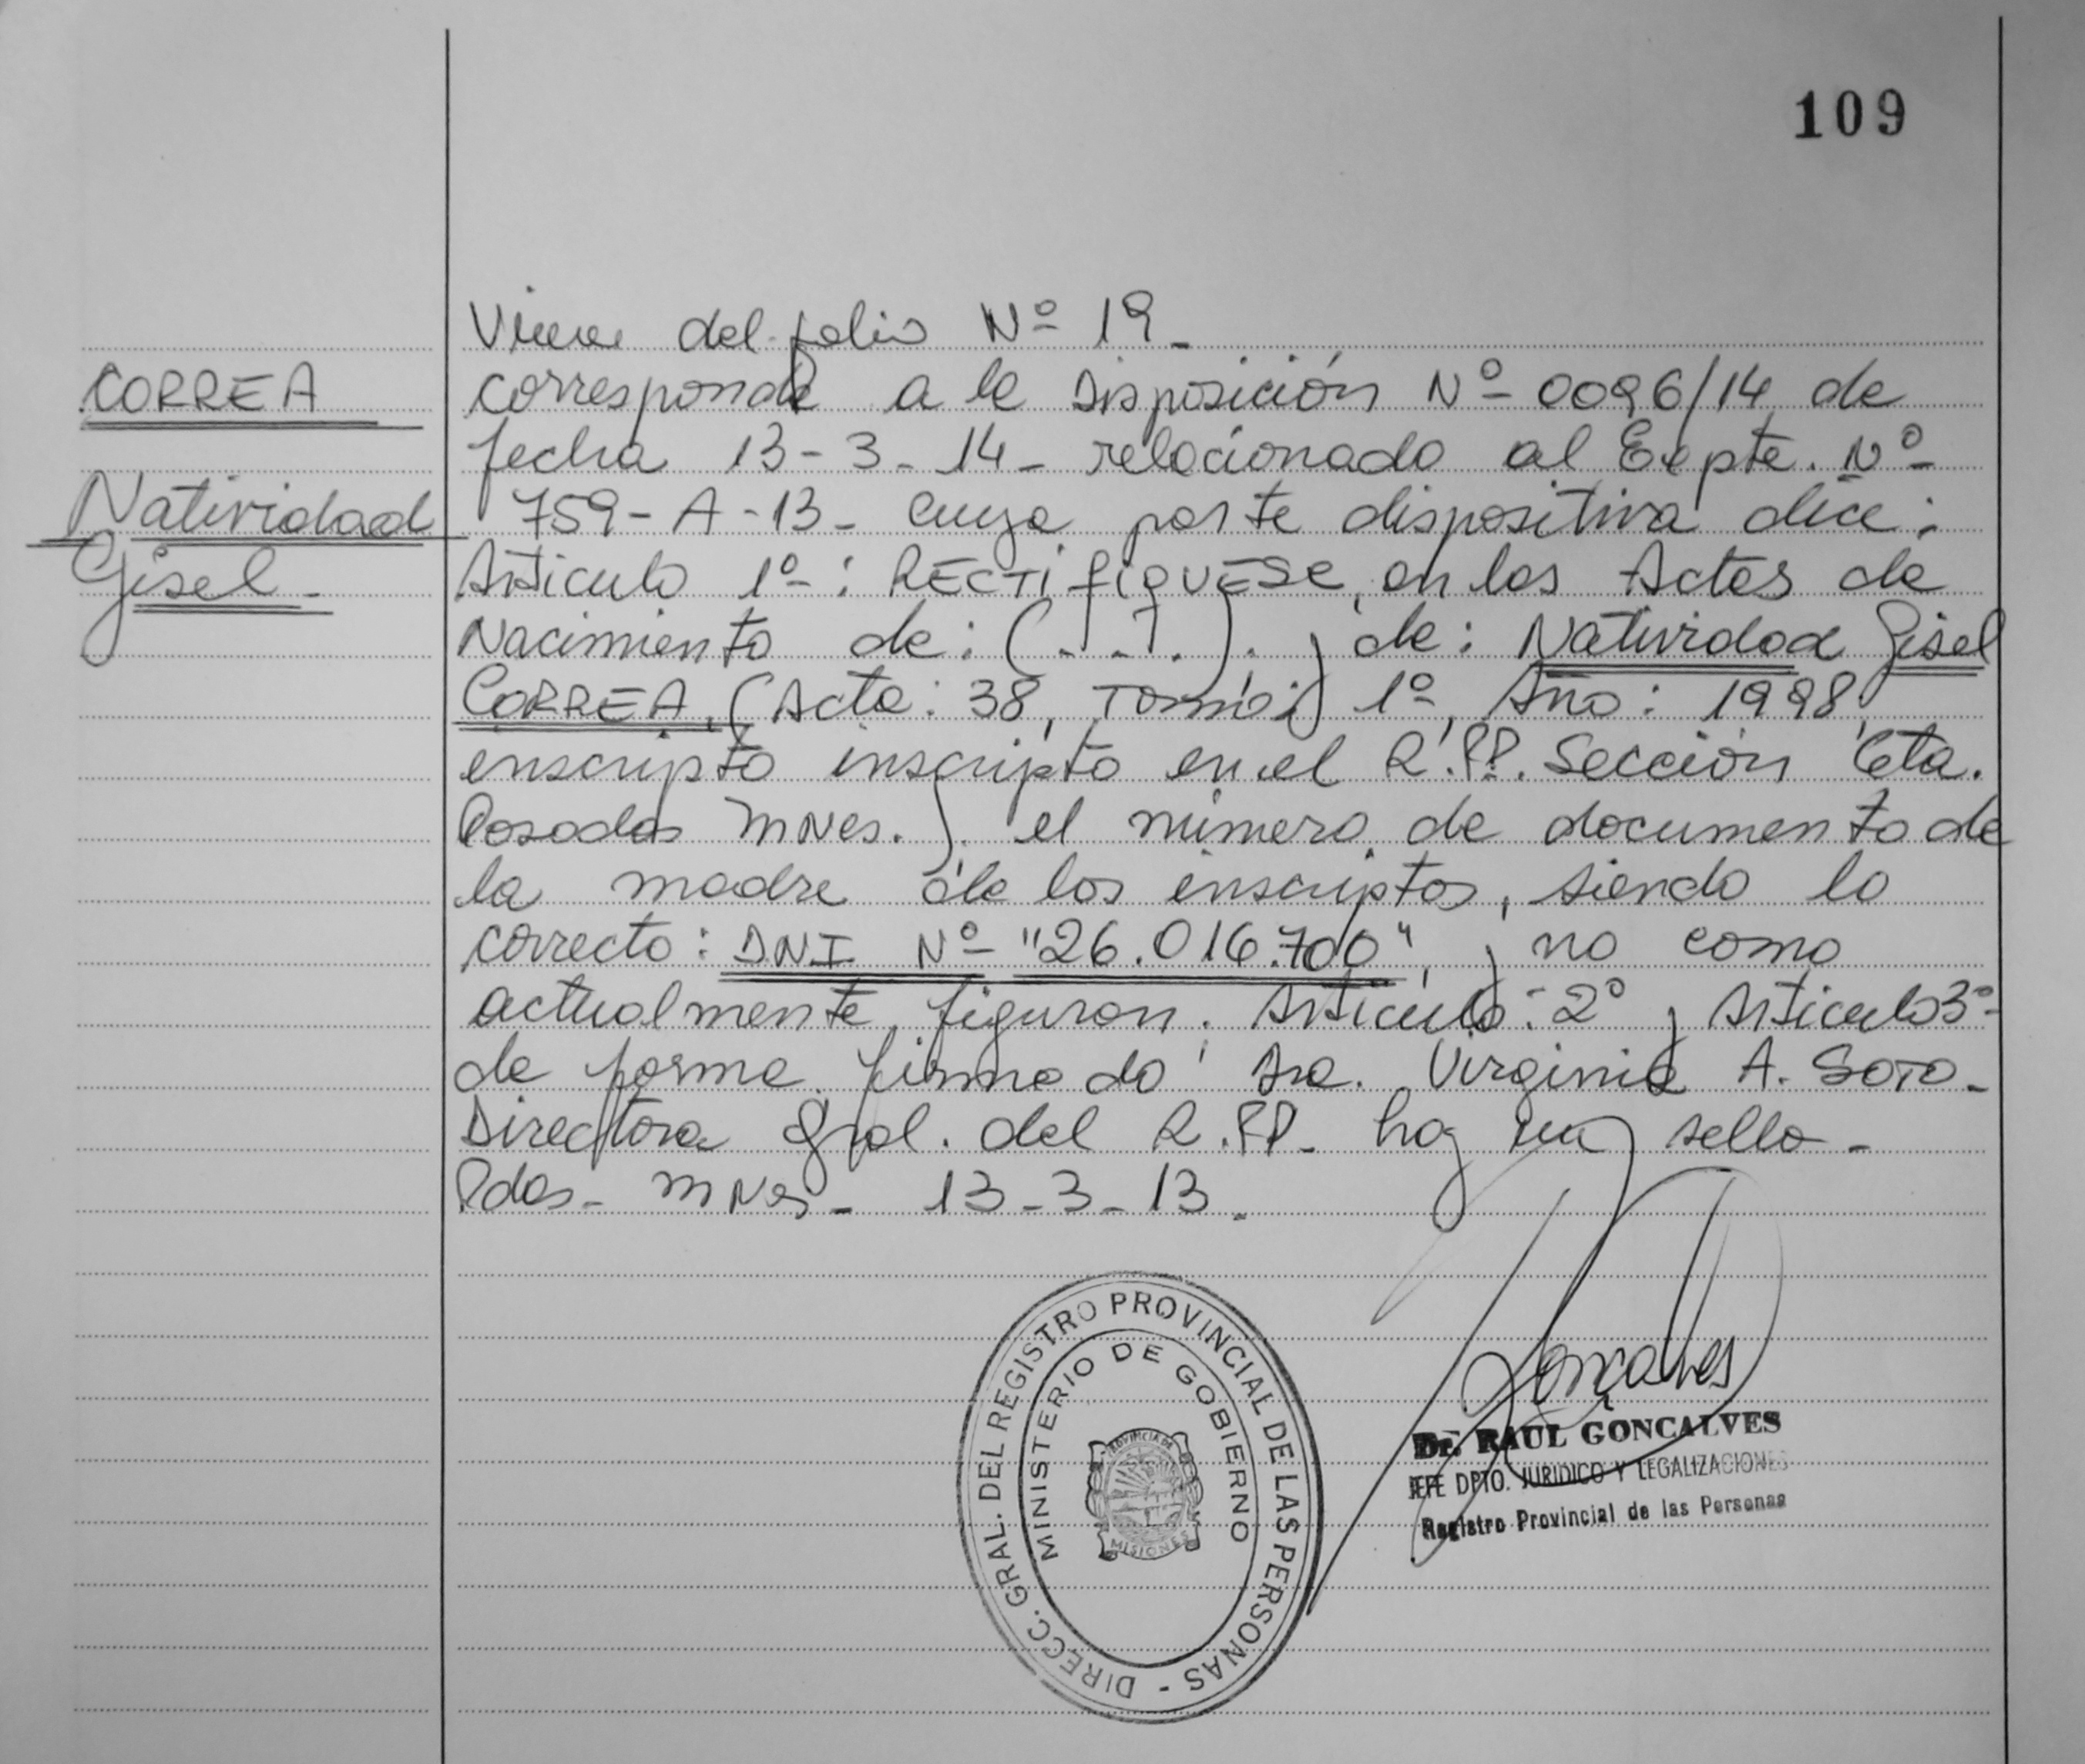 109
Viene del folio Nº 19_
CORREA
corresponde a la Disposición Nº 0096/14 de
fecha 13-3-14- relacionado al Expte. Nº
Natividad
759-A-13- cuya parte dispositiva dice:
Gisel-
Artículo 1º: RECTIFIQUESE, en las Actas de
Nacimiento de: (...). y de: Natividad Gisel
CORREA, (Acta: 38, Tomo: 1º, Año: 1998,
enscripto inscripto en el R.PP. Sección 6ta.
Posadas Mnes.). el número de documento de
la madre de los inscriptos, siendo lo
correcto: DNI Nº "26.016.700", y no como
actualmente figuran. Artículo: 2º y Artículo 3º
de forma. firmado Sra. Virginia A. SOTO-
Directora Gral. del R.PP- hay un sello-
Pdas- Mnes- 13-3-13-
DIRECC. GRAL. DEL REGISTRO PROVINCIAL DE LAS PERSONAS -
MINISTERIO DE GOBIERNO
PROVINCIA DE
MISIONES
Gonçalves
Dr. RAUL GONCALVES
JEFE DPTO. JURIDICO Y LEGALIZACIONES
Registro Provincial de las Personas